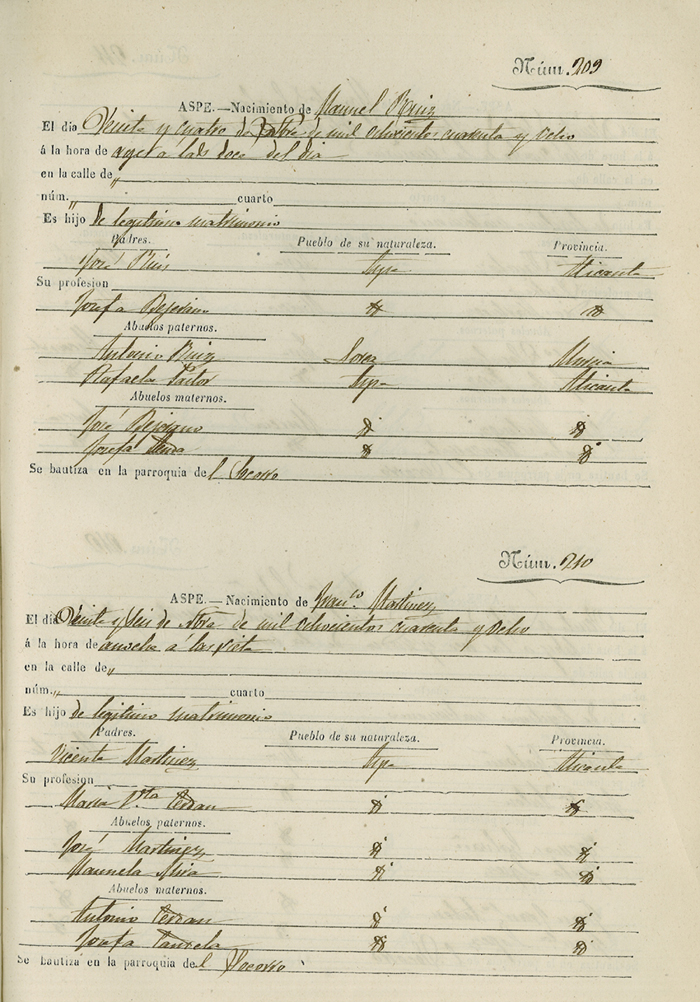 Núm. 209
ASPE.—Nacimiento de Manuel Ruiz
El día Veinte y cuatro de de mil ochocientos cuarenta y ocho
á la hora de ayer a las doce del dia
en la calle de „
núm. „ cuarto
Es hijo de legitimo matrimonio
Padres. Pueblo de su naturaleza. Provincia.
José Ruis Aspe Alicante
Su profesion
Josefa Bejerano
Abuelos paternos.
Antonio Ruiz Lorca Murcia
Rafaela Pastor Aspe Alicante
Abuelos maternos.
José Bejerano
Josefa
Se bautiza en la parroquia del Socorro
Núm. 210
ASPE.—Nacimiento de Franco. Martinez
El día Veinte y seis de de mil ochocientos cuarenta y ocho
á la hora de anoche á las siete
en la calle de „
núm. „ cuarto
Es hijo de legitimo matrimonio
Padres. Pueblo de su naturaleza. Provincia.
Vicente Martinez Aspe Alicante
Su profesion
Maria Vta
Abuelos paternos.
José Martinez
Manuela Mira
Abuelos maternos.
Antonio
Josefa
Se bautiza en la parroquia del Socorro